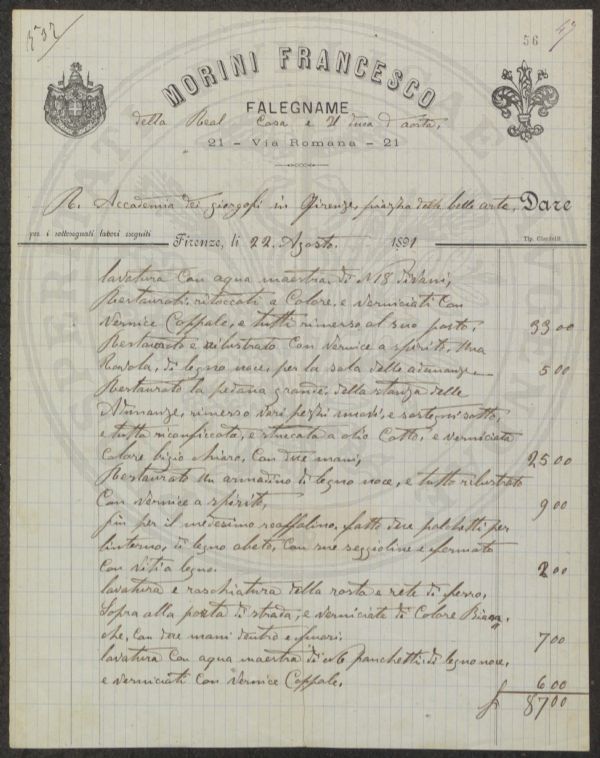 56
MORINI FRANCESCO
FALEGNAME
della Real Casa e Duca d'aosta,
21 - Via Romana - 21
R. Accademia dei giorgofi in Firenze, piazza delle belle arte, Dare
per i sottosegnati lavori eseguiti
Firenze, li 22 Agosto 1891
Tip. Ciardelli
lavatura Con aqua maestra, di N 18 Divani,
Restaurati, ritoccati a Colore, e verniciati Con
Vernice Coppale, e tutti rimerso, al suo posto, 33 00
Restaurato e rilustrato Con vernice a spirito, una
tavola, di legno noce, per la sala delle adunanze 5 00
Restaurato la pedana grande, della stanza delle
Adunanze, rimerso vari pezzi nuovi, e sostegni sotto,
e tutta riconficcata, e stuccata a olio Cotto, e verniciata
Colore bigio chiaro, Con due mani, 25 00
Restaurato un armadino di legno noce, e tutto rilustrato
Con vernice a spirito, 9 00
più per il medesimo scaffalino, fatto due palchetti per
linterno, di legno abeto, Con sue seggioline e fermato
Con viti a legno. 2 00
lavatura e raschiatura della rosta e rete di ferro,
Sopra alla porta di strada, e verniciate di Colore Bian
che, Con due mani dentro e fuori. 7 00
lavatura Con aqua maestra di N 6 panchetti, di legno noce,
e verniciati Con vernice Coppale. 6 00
87 00